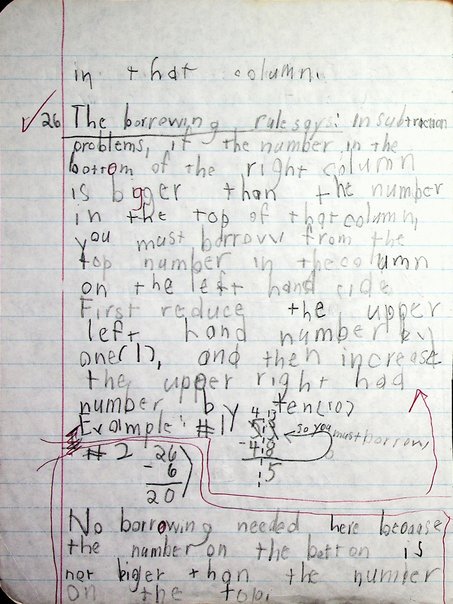 in that column.
26 The borrowing rule says: in subtraction
problems, if the number in the
bottom of the right column
is bigger than the number
in the top of that column,
you must borrow from the
top number in the column
on the left hand side
First reduce the upper
left hand number by
one (1), and then increase
the upper right had
number by ten (10)
Example: #1
4 13
53
so you must borrow
- 48
5
#2 26
- 6
20
No borrowing needed here because
the number on the botton is
not bigger than the number
on the top.